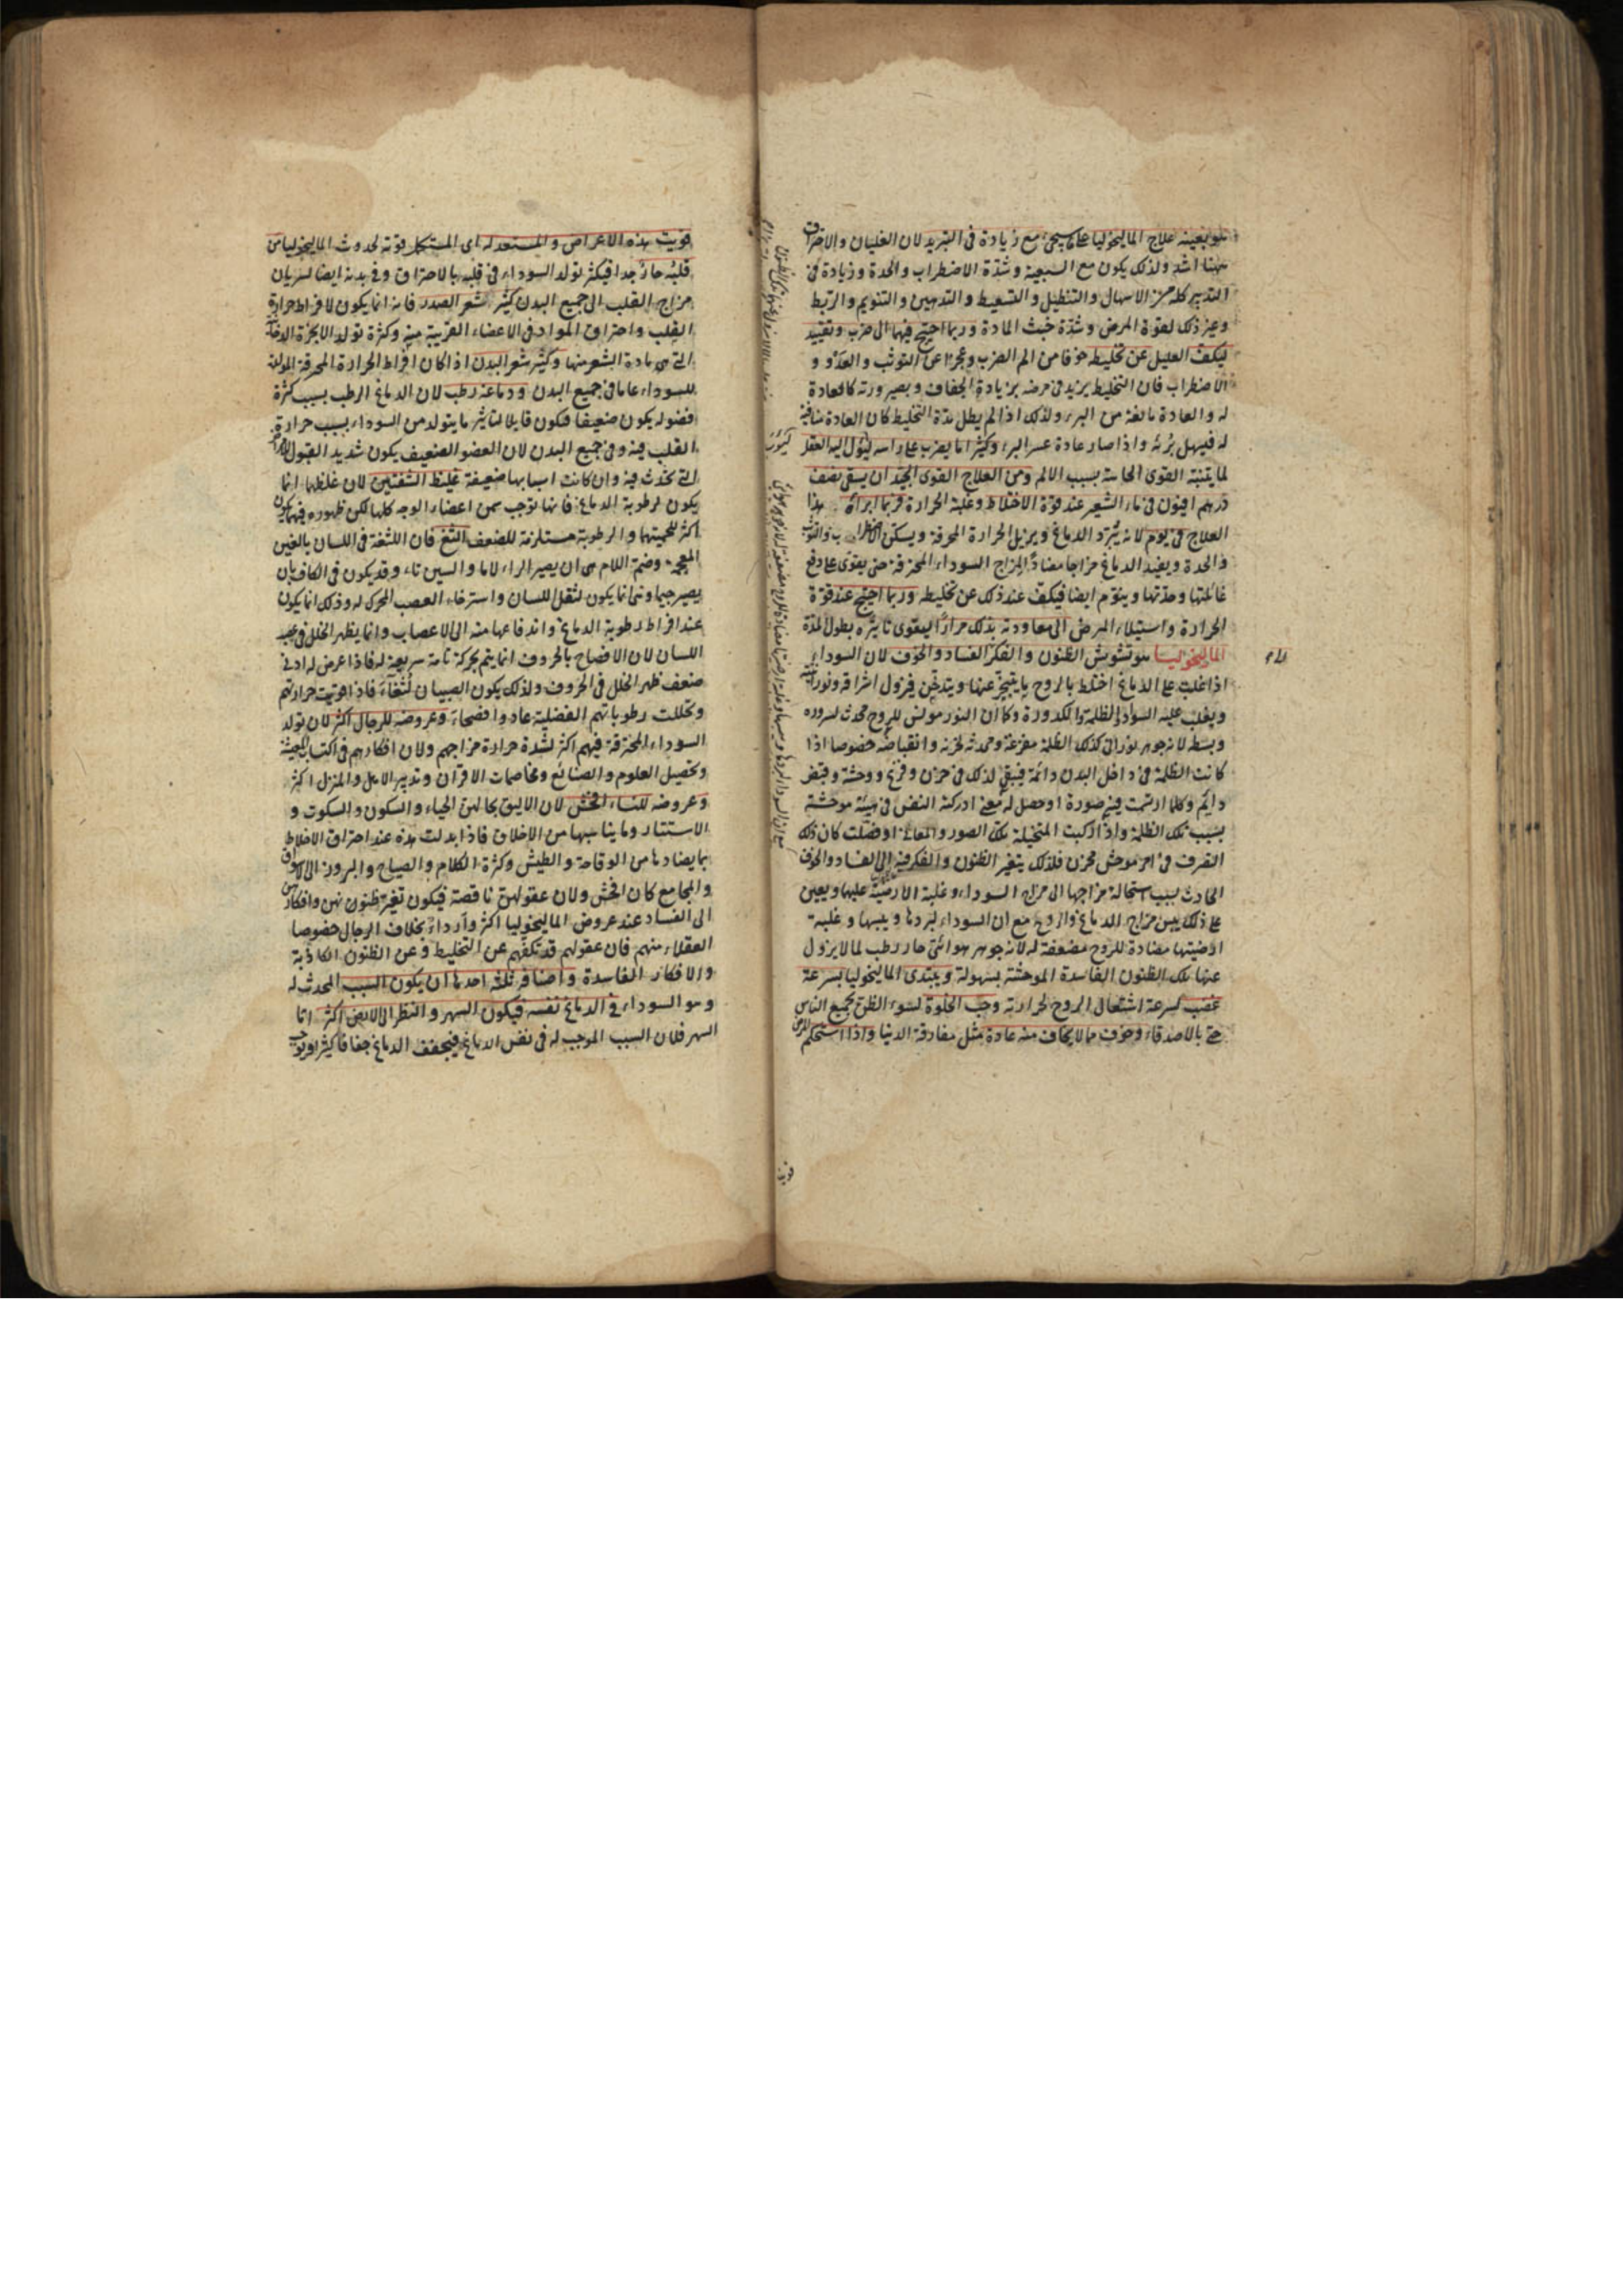 هو بعينه علاج الماليخوليا على ما سيجئ مع زيادة فى التبريد لان الغليان والاحتراق
ههنا اشد ولذلك يكون مع السبعية وشدة الاضطراب والحدة وزيادة فى
التدبير كله من الاسهال والتنطيل والتسعيط والتدهين والتنويم والربط
وغير ذلك لقوة المرض وشدة خبث المادة وربما احتيج فيها الى ضرب وتقييد
ليكف العليل عن تخليطه خوفا من الم الضرب وعجزا عن التوثب والعدو و
الاضطراب فان التخليط يزيد فى مرضه بزيادة الجفاف وبصيرورته كالعادة
له والعادة مانعة من البرء ولذلك اذا لم يطل مدة التخليط كان العادة منافية
له فيسهل برئه واذا صار عادة عسر البرء وكثيرا ما يضرب على راسه ليؤل اليه العقل
لما يتنبه القوى الحاسة بسبب الالم ومن العلاج القوى الجيد ان يسقى نصف
درهم افيون فى ماء الشعير عند قوة الاختلاط وغلبة الحرارة فربما ابرأه هذا
العلاج فى يوم لانه يبرد الدماغ ويزيل الحرارة المحرقة ويسكن الاضطراب والتوثب
والحدة ويفيد الدماغ مزاجا مضادا لمزاج السوداء المحترقة حتى يقوى على دفع
غائلتها وحدتها وينوم ايضا فيكف عند ذلك عن تخليطه وربما احتيج عند قوة
الحرارة واستيلاء المرض الى معاودته بذلك مرارا ليقوى تاثيره بطول المدة
الماليخوليا هو تشوش الظنون والفكر الى الفساد والخوف لان السوداء
اذا غلبت على الدماغ اختلط بالروح ما يتبخر عنها ويتدخن فيزول اشراقه ونورانيته
ويغلب عليه السواد والظلمة والكدورة وكما ان النور مونس للروح محدث لسروره
وبسطه لانه جوهر نورانى كذلك الظلمة مفزعة ومحدثة لحزنه وانقباضه خصوصا اذا
كانت الظلمة فى داخل البدن دائمة فيبقى لذلك فى حزن وفزع ووحشة وقبض
دايم وكلما ارتسمت فيه صورة او حصل له معنى ادركته النفس فى هيئة موحشة
بسبب تلك الظلمة واذا ركبت المتخيلة تلك الصور والمعانى او فصلت كان ذلك
التصرف فى امر موحش محزن فلذلك يتغير الظنون والفكر فيه الى الفساد والخوف
الحادث بسبب استحالة مزاجها الى مزاج السوداء وغلبة الارضية عليها ويعين
على ذلك يبس مزاج الدماغ والروح مع ان السوداء لبردها ويبسها وغلبة
ارضيتها مضادة للروح مضعفة له لانه جوهر هوائى حار رطب لما لا يزول
عنها تلك الظنون الفاسدة الموحشة بسهولة ويبتدى الماليخوليا بسرعة
غضب لسرعة اشتعال الروح لحرارته وحب الخلوة لسوء الظن بجميع الناس
حتى بالاصدقاء وخوف مما لا يخاف منه عادة مثل مفارقة الدنيا واذا استحكم المرض
قويت هذه الاعراض والمستعد له اى المستكمل قوته لحدوث الماليخوليا من
قلبه حار جدا فيكثر تولد السوداء فى قلبه بالاحتراق وفى بدنه ايضا لسريان
مزاج القلب الى جميع البدن كثير شعر الصدر فانه انما يكون لافراط حرارة
القلب واحتراق المواد فى الاعضاء القريبة منه وكثرة تولد الابخرة الدخانية
التى هى مادة الشعر منها وكثير شعر البدن اذا كان افراط الحرارة المحرقة المولدة
للسوداء عاما فى جميع البدن ودماغه رطب لان الدماغ الرطب بسبب كثرة
فضوله يكون ضعيفا فيكون قابلا لتاثير ما يتولد من السوداء بسبب حرارة
القلب فيه وفى جميع البدن لان العضو الضعيف يكون شديد القبول للامراض
التى تحدث فيه وان كانت اسبابها ضعيفة غليظ الشفتين لان غلظهما انما
يكون لرطوبة الدماغ فانها توجب سمن اعضاء الوجه كلها لكن ظهوره فيهما يكون
اكثر للحميتهما والرطوبة مستلزمة للضعف الثغ فان اللثغة فى اللسان بالغين
المعجمة وضم اللام هى ان يصير الراء لاما والسين ثاء وقد يكون فى الكاف بان
يصير جيما وهى انما يكون لثقل اللسان واسترخاء العصب المحرك له وذلك انما يكون
عند افراط رطوبة الدماغ واندفاعها منه الى الاعصاب وانما يظهر الخلل فى عصب
اللسان لان الافصاح بالحروف انما يتم بحركة تامة سريعة له فاذا عرض له ادنى
ضعف ظهر الخلل فى الحروف ولذلك يكون الصبيان لثغاء فاذا قويت حرارتهم
وتحللت رطوباتهم الفضلية عادوا فصحاء وعروضه للرجال اكثر لان تولد
السوداء المحترقة فيهم اكثر لشدة حرارة مزاجهم ولان افكارهم فى اكتساب المعيشة
وتحصيل العلوم والصنائع ومخاصمات الاقران وتدبير الاهل والمنزل اكثر
وعروضه للنساء افحش لان الاليق بحالهن الحياء والسكون والسكوت و
الاستتار وما يناسبها من الاخلاق فاذا بدلت هذه عند احتراق الاخلاط
بما يضادها من الوقاحة والطيش وكثرة الكلام والصياح والبروز الى الاسواق
والمجامع كان افحش ولان عقولهن ناقصة فيكون تغير ظنونهن وافكارهن
الى الفساد عند عروض الماليخوليا اكثر واردأ بخلاف الرجال خصوصا
العقلاء منهم فان عقولهم قد تكفهم عن التخليط وعن الظنون الكاذبة
والافكار الفاسدة واصنافه ثلثة احدها ان يكون السبب المحدث له
وهو السوداء فى الدماغ نفسه فيكون السهر والنظر الى الارض اكثر اما
السهر فلان السبب الموجب له فى نفس الدماغ فيجفف الدماغ جفافا كثيرا ويوجب